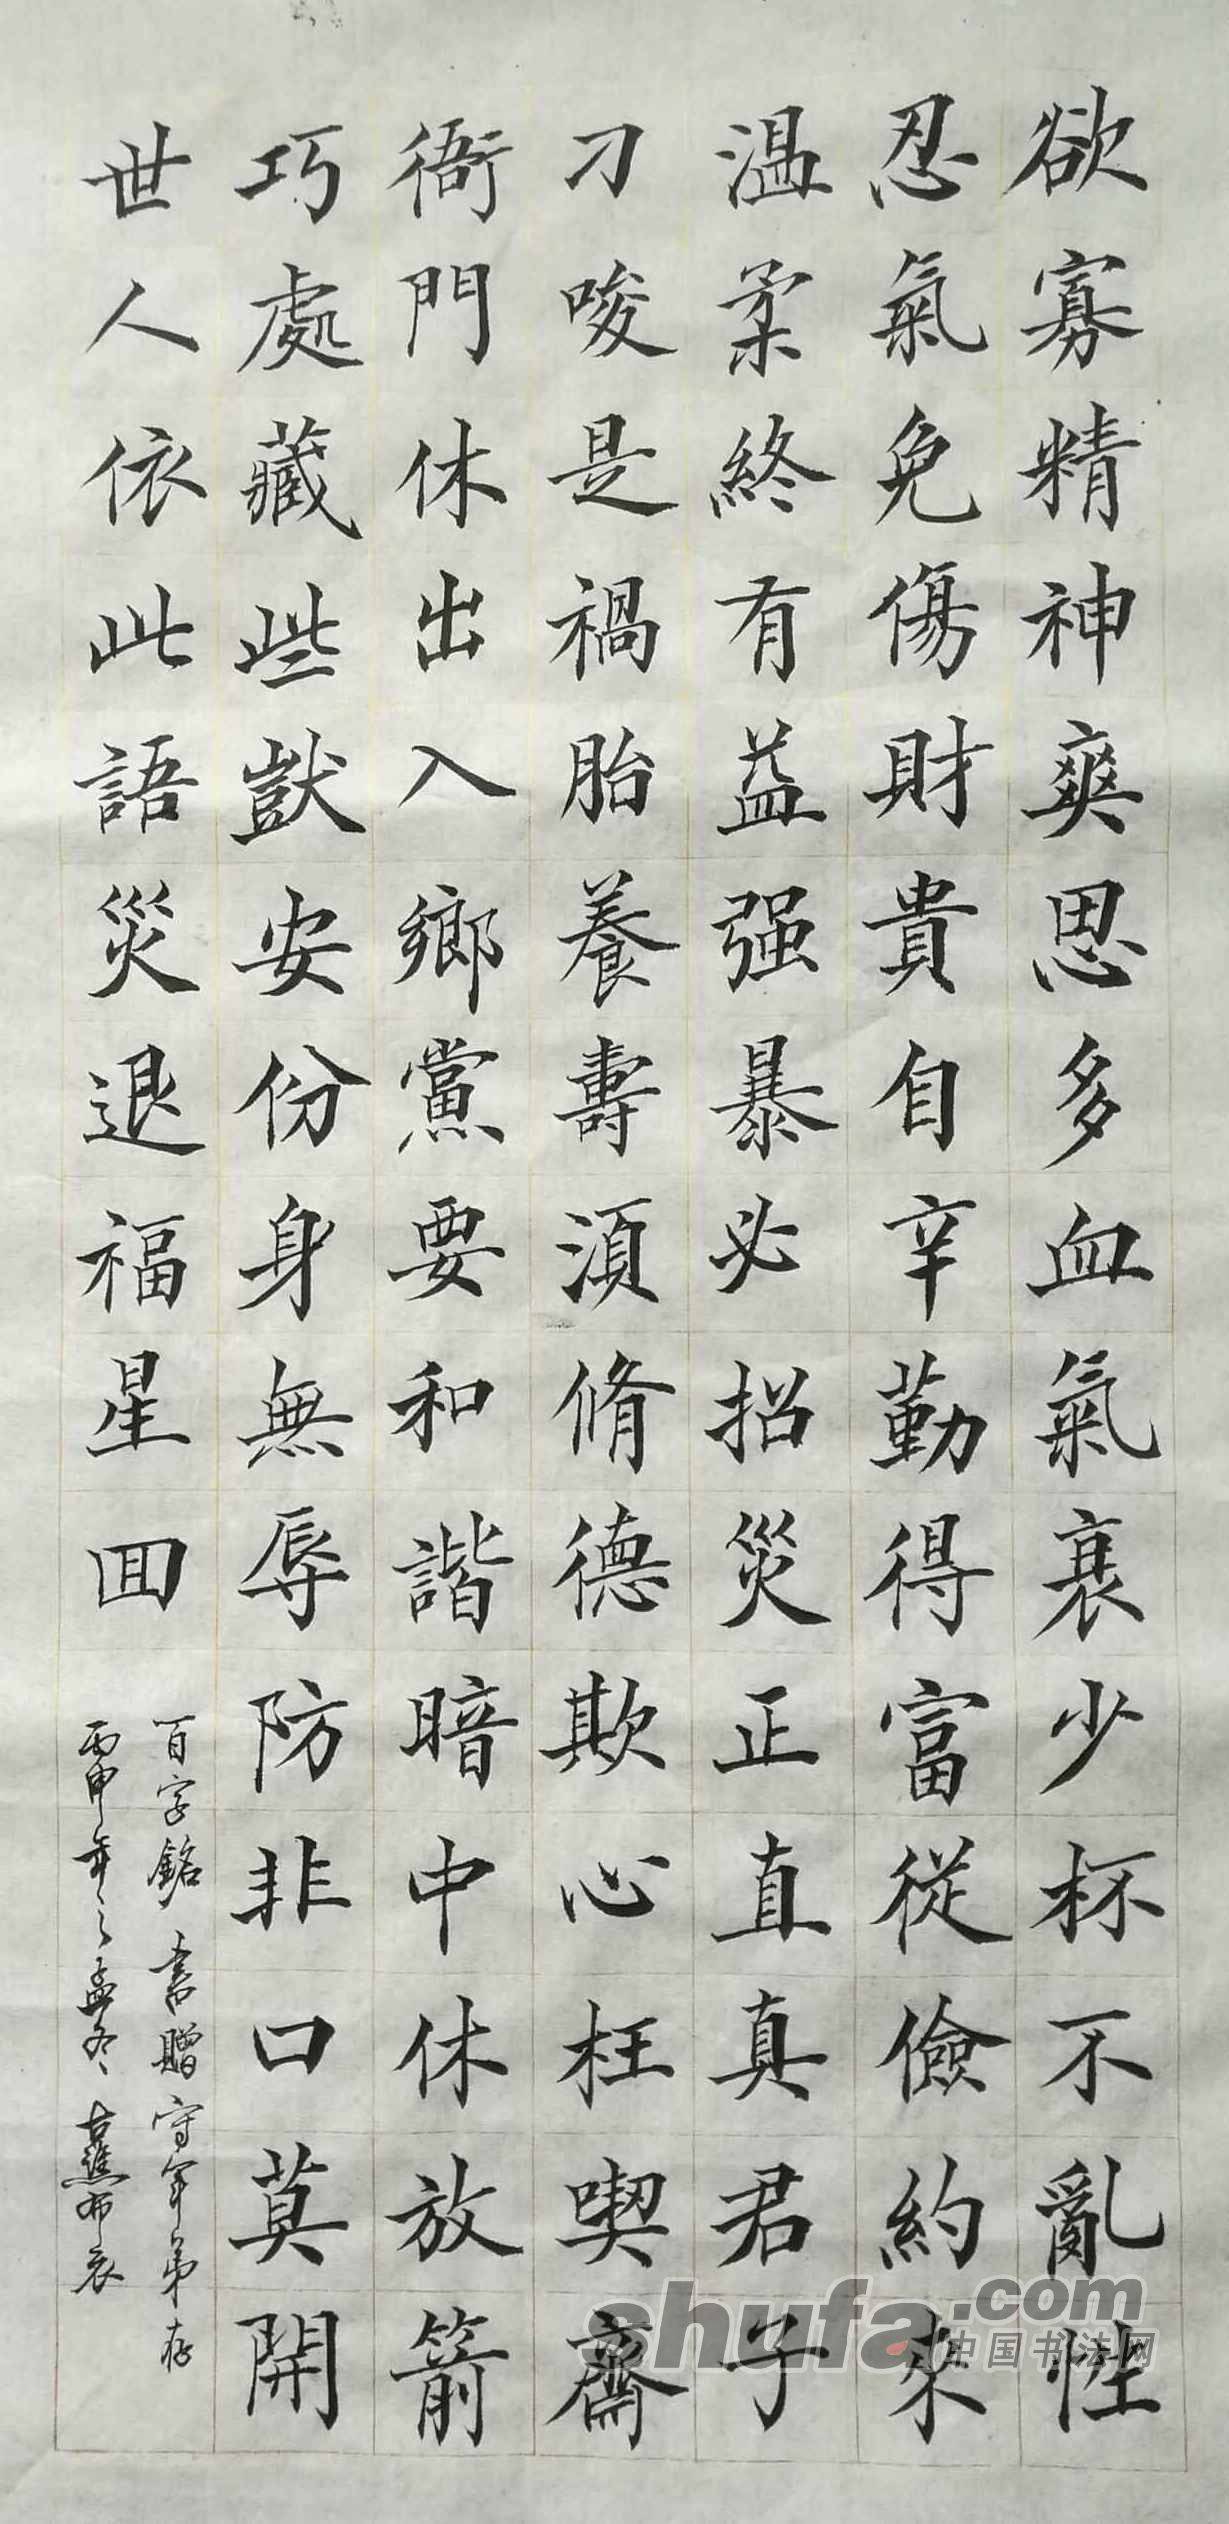 欲寡精神爽思多血氣衰少杯不亂性
忍氣免傷財貴自辛勤得富從儉約來
溫柔終有益强暴必招災正直真君子
刁唆是禍胎養壽須脩德欺心枉喫齋
衙門休出入鄉黨要和諧暗中休放箭
巧處藏些獃安份身無辱防非口莫開
世人依此語災退福星回
百字銘 書贈守軍弟存
丙申年之孟冬 古蕉布衣
shufa.com
中国书法网